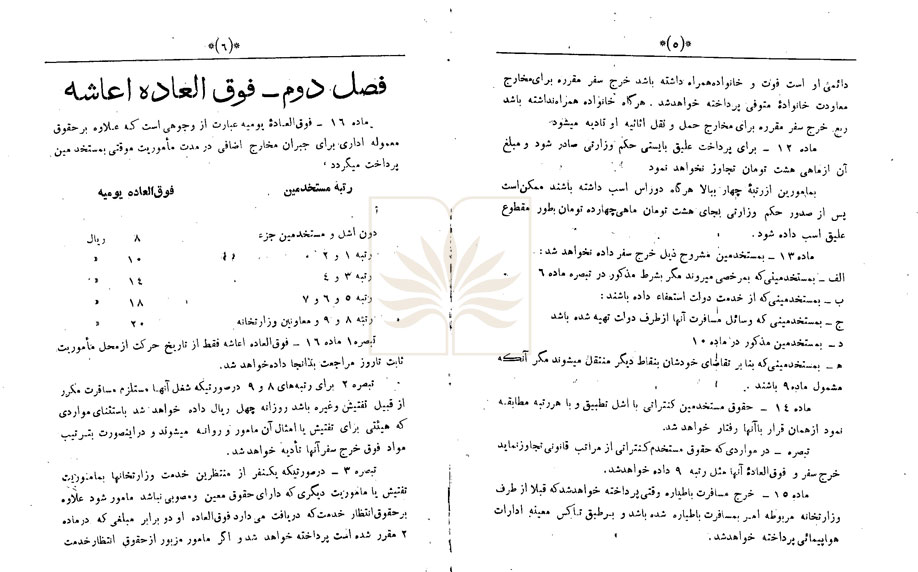 *(۵)*
دائمی او است فوت و خانواده همراه داشته باشد خرج سفر مقرره برای مخارج
معاودت خانوادهٔ متوفی پرداخته خواهد شد . هرگاه خانواده همراه نداشته باشد
ربع خرج سفر مقرره برای مخارج حمل و نقل اثاثیه او تادیه میشود
ماده ۱۲ ــ برای پرداخت علیق بایستی حکم وزارتی صادر شود و مبلغ
آن از ماهی هشت تومان تجاوز نخواهد نمود
بمامورین از رتبهٔ چهار ببالا هرگاه دوراس اسب داشته باشند ممکن است
پس از صدور حکم وزارتی بجای هشت تومان ماهی چهارده تومان بطور مقطوع
علیق اسب داده شود .
ماده ۱۳ ــ بمستخدمین مشروح ذیل خرج سفر داده نخواهد شد :
الف ــ بمستخدمینی که بمرخصی میروند مگر بشرط مذکور در تبصره ماده ۶
ب ــ بمستخدمینی که از خدمت دولت استعفاء داده باشند :
ج ــ بمستخدمینی که وسائل مسافرت آنها از طرف دولت تهیه شده باشد
د ــ بمستخدمین مذکور در ماده ۱۰
ه ــ بمستخدمینی که بنا بر تقاضای خودشان بنقاط دیگر منتقل میشوند مگر آنکه
مشمول ماده ۹ باشند .
ماده ۱۴ ــ حقوق مستخدمین کنتراتی با اشل تطبیق و با هر رتبه مطابقه
نمود از همان قرار با آنها رفتار خواهد شد.
تبصره ــ در مواردی که حقوق مستخدم کنتراتی از مراتب قانونی تجاوز نماید
خرج سفر و فوق العادهٔ آنها مثل رتبه ۹ داده خواهد شد.
ماده ۱۵ ــ خرج مسافرت باطیاره وقتی پرداخته خواهد شد که قبلا از طرف
وزارتخانه مربوطه امر بمسافرت باطیاره شده باشد و برطبق تاکس معینه ادارات
هواپیمائی پرداخته خواهد شد.
*(۶)*
فصل دوم ــ فوق العاده اعاشه
ماده ۱۶ ــ فوق العادهٔ یومیه عبارت از وجوهی است که علاوه بر حقوق
معموله اداری برای جبران مخارج اضافی در مدت مأموریت موقتی بمستخدمین
پرداخت میگردد
رتبهٔ مستخدمین فوق العاده یومیه
دون اشل و مستخدمین جزء ۸ ریال
رتبه ۱ و ۲ ۱۰ »
رتبه ۳ و ۴ ۱۴ »
رتبه ۵ و ۶ و ۷ ۱۸ »
رتبه ۸ و ۹ و معاونین وزارتخانه ۲۰ »
تبصره ۱ ماده ۱۶ ــ فوق العاده اعاشه فقط از تاریخ حرکت از محل مأموریت
ثابت تا روز مراجعت بدانجا داده خواهد شد
تبصره ۲ برای رتبه‌های ۸ و ۹ در صورتیکه شغل آنها مستلزم مسافرت مکرر
از قبیل تفتیش و غیره باشد روزانه چهل ریال داده خواهد شد باستثنای مواردی
که هیئتی برای تفتیش یا امثال آن مامور و روانه میشوند و در اینصورت بترتیب
مواد فوق خرج سفر آنها تأدیه خواهد شد.
تبصره ۳ ــ در صورتیکه یکنفر از منتظرین خدمت وزارتخانها بماموریت
تفتیش یا ماموریت دیگری که دارای حقوق معین و مصوبی نباشد مامور شود علاوه
بر حقوق انتظار خدمت که دریافت می دارد فوق العاده او دو برابر مبلغی که در ماده
۲ مقرر شده است پرداخته خواهد شد و اگر مامور مزبور از حقوق انتظار خدمت